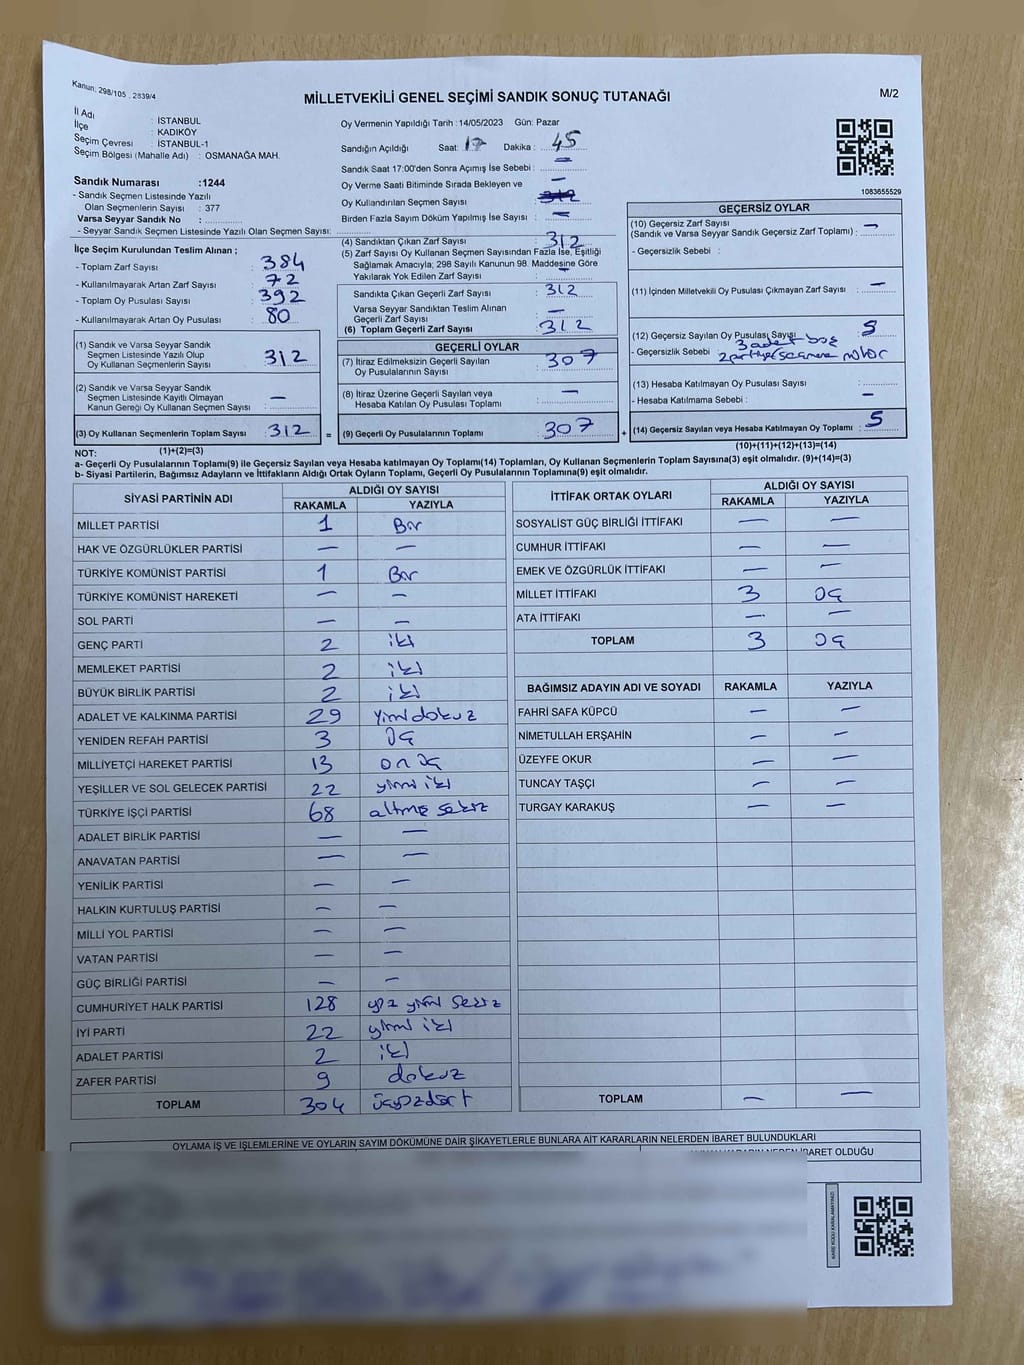 Kanun: 298/105 , 2839/4
MİLLETVEKİLİ GENEL SEÇİMİ SANDIK SONUÇ TUTANAĞI
M/2
İl Adı : İSTANBUL
İlçe : KADIKÖY
Seçim Çevresi : İSTANBUL-1
Seçim Bölgesi (Mahalle Adı) : OSMANAĞA MAH.
Sandık Numarası :1244
- Sandık Seçmen Listesinde Yazılı
Olan Seçmenlerin Sayısı : 377
Varsa Seyyar Sandık No :
- Seyyar Sandık Seçmen Listesinde Yazılı Olan Seçmen Sayısı:
Oy Vermenin Yapıldığı Tarih :14/05/2023 Gün: Pazar
Sandığın Açıldığı Saat: 17 Dakika : 45
Sandık Saat 17:00'den Sonra Açımış İse Sebebi : —
Oy Verme Saati Bitiminde Sırada Bekleyen ve —
Oy Kullandırılan Seçmen Sayısı
Birden Fazla Sayım Döküm Yapılmış İse Sayısı : —
1083655529
İlçe Seçim Kurulundan Teslim Alınan ;
- Toplam Zarf Sayısı : 384
- Kullanılmayarak Artan Zarf Sayısı : 72
- Toplam Oy Pusulası Sayısı : 392
- Kullanılmayarak Artan Oy Pusulası : 80
(1) Sandık ve Varsa Seyyar Sandık
Seçmen Listesinde Yazılı Olup
Oy Kullanan Seçmenlerin Sayısı : 312
(2) Sandık ve Varsa Seyyar Sandık
Seçmen Listesinde Kayıtlı Olmayan
Kanun Gereği Oy Kullanan Seçmen Sayısı : —
(3) Oy Kullanan Seçmenlerin Toplam Sayısı : 312
(4) Sandıktan Çıkan Zarf Sayısı : 312
(5) Zarf Sayısı Oy Kullanan Seçmen Sayısından Fazla İse, Eşitliği
Sağlamak Amacıyla; 298 Sayılı Kanunun 98. Maddesine Göre
Yakılarak Yok Edilen Zarf Sayısı : —
Sandıkta Çıkan Geçerli Zarf Sayısı : 312
Varsa Seyyar Sandıktan Teslim Alınan
Geçerli Zarf Sayısı : —
(6) Toplam Geçerli Zarf Sayısı : 312
GEÇERLİ OYLAR
(7) İtiraz Edilmeksizin Geçerli Sayılan
Oy Pusulalarının Sayısı : 307
(8) İtiraz Üzerine Geçerli Sayılan veya
Hesaba Katılan Oy Pusulası Toplamı : —
= (9) Geçerli Oy Pusulalarının Toplamı : 307
GEÇERSİZ OYLAR
(10) Geçersiz Zarf Sayısı
(Sandık ve Varsa Seyyar Sandık Geçersiz Zarf Toplamı) : —
- Geçersizlik Sebebi :
(11) İçinden Milletvekili Oy Pusulası Çıkmayan Zarf Sayısı : —
(12) Geçersiz Sayılan Oy Pusulası Sayısı : 5
- Geçersizlik Sebebi : 3 adet boş
(13) Hesaba Katılmayan Oy Pusulası Sayısı :
- Hesaba Katılmama Sebebi : —
+ (14) Geçersiz Sayılan veya Hesaba Katılmayan Oy Toplamı : 5
NOT: (1)+(2)=(3)
(10)+(11)+(12)+(13)=(14)
a- Geçerli Oy Pusulalarının Toplamı(9) ile Geçersiz Sayılan veya Hesaba katılmayan Oy Toplamı(14) Toplamları, Oy Kullanan Seçmenlerin Toplam Sayısına(3) eşit olmalıdır. (9)+(14)=(3)
b- Siyasi Partilerin, Bağımsız Adayların ve İttifakların Aldığı Ortak Oyların Toplamı, Geçerli Oy Pusulalarının Toplamına(9) eşit olmalıdır.
SİYASİ PARTİNİN ADI ALDIĞI OY SAYISI
RAKAMLA YAZIYLA
MİLLET PARTİSİ 1 Bir
HAK VE ÖZGÜRLÜKLER PARTİSİ — —
TÜRKİYE KOMÜNİST PARTİSİ 1 Bir
TÜRKİYE KOMÜNİST HAREKETİ — —
SOL PARTİ — —
GENÇ PARTİ 2 iki
MEMLEKET PARTİSİ 2 iki
BÜYÜK BİRLİK PARTİSİ 2 iki
ADALET VE KALKINMA PARTİSİ 29 yirmi dokuz
YENİDEN REFAH PARTİSİ 3 üç
MİLLİYETÇİ HAREKET PARTİSİ 13 on üç
YEŞİLLER VE SOL GELECEK PARTİSİ 22 yirmi iki
TÜRKİYE İŞÇİ PARTİSİ 68 altmış sekiz
ADALET BİRLİK PARTİSİ — —
ANAVATAN PARTİSİ — —
YENİLİK PARTİSİ — —
HALKIN KURTULUŞ PARTİSİ — —
MİLLİ YOL PARTİSİ — —
VATAN PARTİSİ — —
GÜÇ BİRLİĞİ PARTİSİ — —
CUMHURİYET HALK PARTİSİ 128 yüz yirmi sekiz
İYİ PARTİ 22 yirmi iki
ADALET PARTİSİ 2 iki
ZAFER PARTİSİ 9 dokuz
TOPLAM 304 üçyüzdört
İTTİFAK ORTAK OYLARI ALDIĞI OY SAYISI
RAKAMLA YAZIYLA
SOSYALİST GÜÇ BİRLİĞİ İTTİFAKI — —
CUMHUR İTTİFAKI — —
EMEK VE ÖZGÜRLÜK İTTİFAKI — —
MİLLET İTTİFAKI 3 üç
ATA İTTİFAKI — —
TOPLAM 3 üç
BAĞIMSIZ ADAYIN ADI VE SOYADI RAKAMLA YAZIYLA
FAHRİ SAFA KÜPCÜ — —
NİMETULLAH ERŞAHİN — —
ÜZEYFE OKUR — —
TUNCAY TAŞÇI — —
TURGAY KARAKUŞ — —
TOPLAM — —
OYLAMA İŞ VE İŞLEMLERİNE VE OYLARIN SAYIM DÖKÜMÜNE DAİR ŞİKAYETLERLE BUNLARA AİT KARARLARIN NELERDEN İBARET BULUNDUKLARI
NEDEN İBARET OLDUĞU
KARE KODU KARALAMAYINIZ!